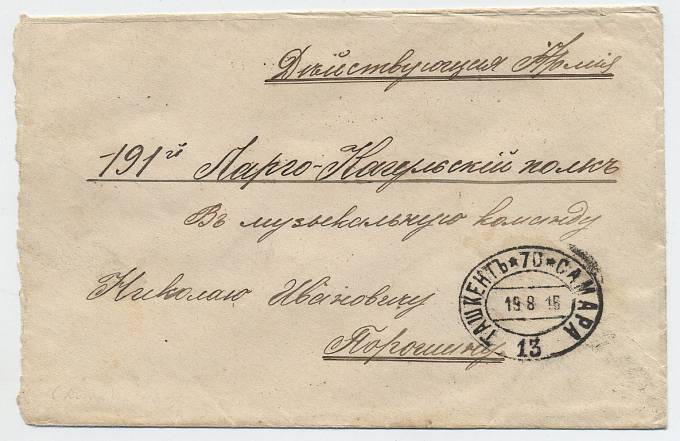 Дѣйствующая Армія
191й Ларго-Кагульскій полкъ
Въ музыкальную команду
Николаю Ивановичу
Порошину
ТАШКЕНТЪ * 70 * САМАРА
19 8 15
13